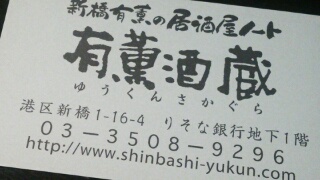 新橋有薫の居酒屋ノート
有薫酒蔵
ゆうくんさかぐら
港区新橋1-16-4 りそな銀行地下1階
03-3508-9296
http://www.shinbashi-yukun.com/